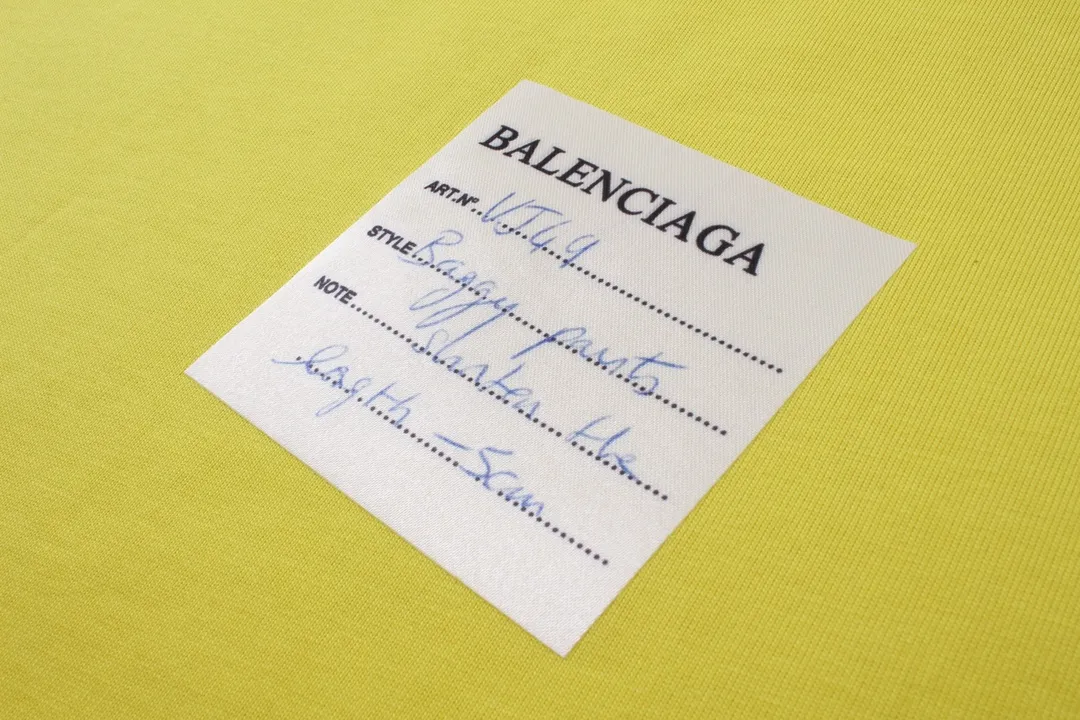 BALENCIAGA
ART.Nº. VJ49
STYLE Baggy pants
NOTE shorten the
length -5cm